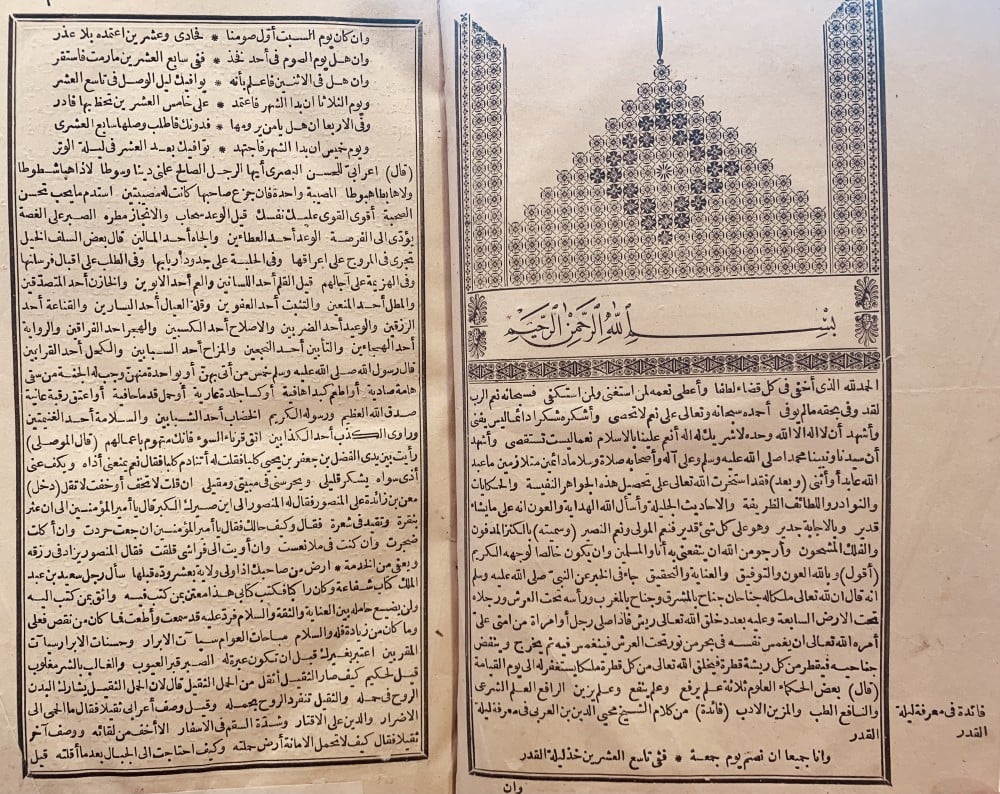 بسم الله الرحمن الرحيم
الحمد لله الذى أخفى فى كل قضاء لطفا وأعطى نعمه لمن استغنى ولمن استكفى فسبحانه نعم الرب
لقد وفى بحقه مالم يوفى أحمده سبحانه وتعالى على نعم لا تحصى وأشكره شكرا دائما ليس يفنى
وأشهد أن لا اله الا الله وحده لا شريك له اله أنعم علينا بالاسلام نعما ليست تستقصى وأشهد
أن سيدنا ونبينا محمدا صلى الله عليه وسلم وعلى آله وأصحابه صلاة وسلاما دائمين متلازمين ما عبد
الله عابد أو أثنى (وبعد) فقد استخرت الله تعالى على تحصيل هذه الجواهر النفيسة والحكايات
والنوادر واللطائف الظريفة والاحاديث الجليلة وأسأل الله الهداية والعون انه على ما يشاء
قدير وبالاجابة جدير وهو على كل شئ قدير فنعم المولى ونعم النصير (وسميته) بالكنز المدفون
والفلك المشحون وأرجو من الله ان ينفعنى به أنا والمسلمين وان يكون خالصا لوجهه الكريم
(أقول) وبالله العون والتوفيق والعناية والتحقيق جاء فى الخبر عن النبى صلى الله عليه وسلم
انه قال ان لله تعالى ملكا له جناحان جناح بالمشرق وجناح بالمغرب ورأسه تحت العرش ورجلاه
تحت الارض السابعة وعليه بعدد خلق الله تعالى ريش فاذا صلى رجل أو امرأة من امتى على
أمره الله تعالى ان يغمس نفسه فى بحر من نور تحت العرش فينغمس فيه ثم يخرج وينفض
جناحيه فيقطر من كل ريشة قطرة فيخلق الله تعالى من كل قطرة ملكا يستغفر له الى يوم القيامة
(قال) بعض الحكماء العلوم ثلاثة علم يرفع وعلم ينفع وعلم يزين الرافع العلم الشرعى
والنافع الطب والمزين الادب (فائدة) من كلام الشيخ محيى الدين بن العربى فى معرفة ليلة
القدر
وانا جميعا ان نصم يوم جمعة * ففى تاسع العشرين خذ ليلة القدر
وان
فائدة فى معرفة ليلة
القدر
وان كان يوم السبت أول صومنا * فحادى وعشرين اعتمده بلا عذر
وان هل يوم الصوم فى أحد فخذ * ففى سابع العشرين مارمت فاستقر
وان هل فى الاثنين فاعلم بأنه * يوافيك ليل الوصل فى تاسع العشر
ويوم الثلاثا ان بدا الشهر فاعتمد * على خامس العشرين تحظى بها فادر
وفى الاربعا ان هل يامن يرومها * فدونك فاطلب وصلها سابع العشرى
ويوم خميس ان بدا الشهر فاجتهد * توافيك بعد العشر فى ليلة الوتر
(قال) اعرابى للحسن البصرى أيها الرجل الصالح علمنى دينا وسوطا لا ذاهبا شطوطا
ولا هابطا هبوطا المصيبة واحدة فان جزع صاحبها كانت له مصيبتين استدم ما يحب تحسن
الصحبة أقوى القوى عليك نفسك قيل الوعد سحاب والانجاز مطره الصبر على الغصة
يؤدى الى الفرصة الوعد أحد العطاءين والجاه أحد المالين قال بعض السلف الخيل
تجرى فى المروج على اعراقها وفى الحلبة على جدود أربابها وفى الطلب على اقبال فرسانها
وفى الهزيمة على آجالهم قيل القلم أحد اللسانين والعم أحد الابوين والخازن أحد المتصدقين
والمطل أحد المنعين والتثبت أحد العفوين وقلة العيال أحد اليسارين والقناعة أحد
الرزقين والوعيد أحد الضربين والاصلاح أحد الكسبين والهجر احد الفراقين والرواية
أحد الهجاءين والتأبين أحد النجيعين والمزاح أحد السبابين والكحل أحد القرابين
قال رسول الله صلى الله عليه وسلم خمس من أتى بهن أو بواحدة منهن وجب له الجنة من سقى
هامة صادية أو اطعم كبدا هافية أو كسا جلدة عارية أو حمل قدما حافية أو اعتق رقبة عانية
صدق الله العظيم ورسوله الكريم الخضاب أحد الشبابين والسلامة أحد الغنيمتين
وراوى الكذب أحد الكذابين اتق قرناء السوء فانك متهوم باعمالهم (قال الموصلى)
رأيت بين يدى الفضل بن جعفر بن يحيى كلبا فقلت له أتنادم كلبا فقال نعم يمنعنى أذاه ويكف عنى
أذى سواه يشكر قليلى ويحرسنى فى مبيتى ومقيلى ان قلت لا تخف أو خفت لا تقل (دخل)
معن بن زائدة على المنصور فقال له المنصور الى ابن صيرك الكبر قال يا أمير المؤمنين الى ان عثر
ببقرة وتقيد فى شعرة فقال وكيف حالك فقال يا أمير المؤمنين ان جعت حردت وان أكلت
ضجرت وان كنت فى ملا نعست وان أويت الى فراشى قلقت فقال المنصور يزاد فى رزقه
ويعفى من الخدمة * ارض من صاحبك اذا ولى ولاية بعشر وده قبلها سأل رجل سعيد بن عبد
الملك كتاب شفاعة وكان راكبا فكتب كتابى هذا معتن بمن كتب فيه واثق بمن كتب اليه
ولن يضيع حامله بين العناية والثقة والسلام فرد عليه قد سمعت وأطعت فما كان من نقص فعلى
وما كان من زيادة فله والسلام مباحات العوام سيآت الابرار وحسنات الابرار سيآت
المقربين اعتبر بغيرك قبل ان تكون عبرة له الصبر قبر العيوب والغالب بالشر مغلوب
قيل لحكيم كيف صار الثقيل أثقل من الحمل الثقيل قال لان الحمل الثقيل يشارك البدن
الروح فى حمله والثقيل تنفرد الروح بحمله وقيل وصف أعرابى ثقيلا فقال ما الحمى الى
الاضرار والدين على الاقتار وشدة السقم فى الاسفار الا أخف من لقائه ووصف آخر
ثقيلا فقال كيف لا تحمل الامانة أرض حملته وكيف احتاجت الى الجبال بعد ما أقلته قيل